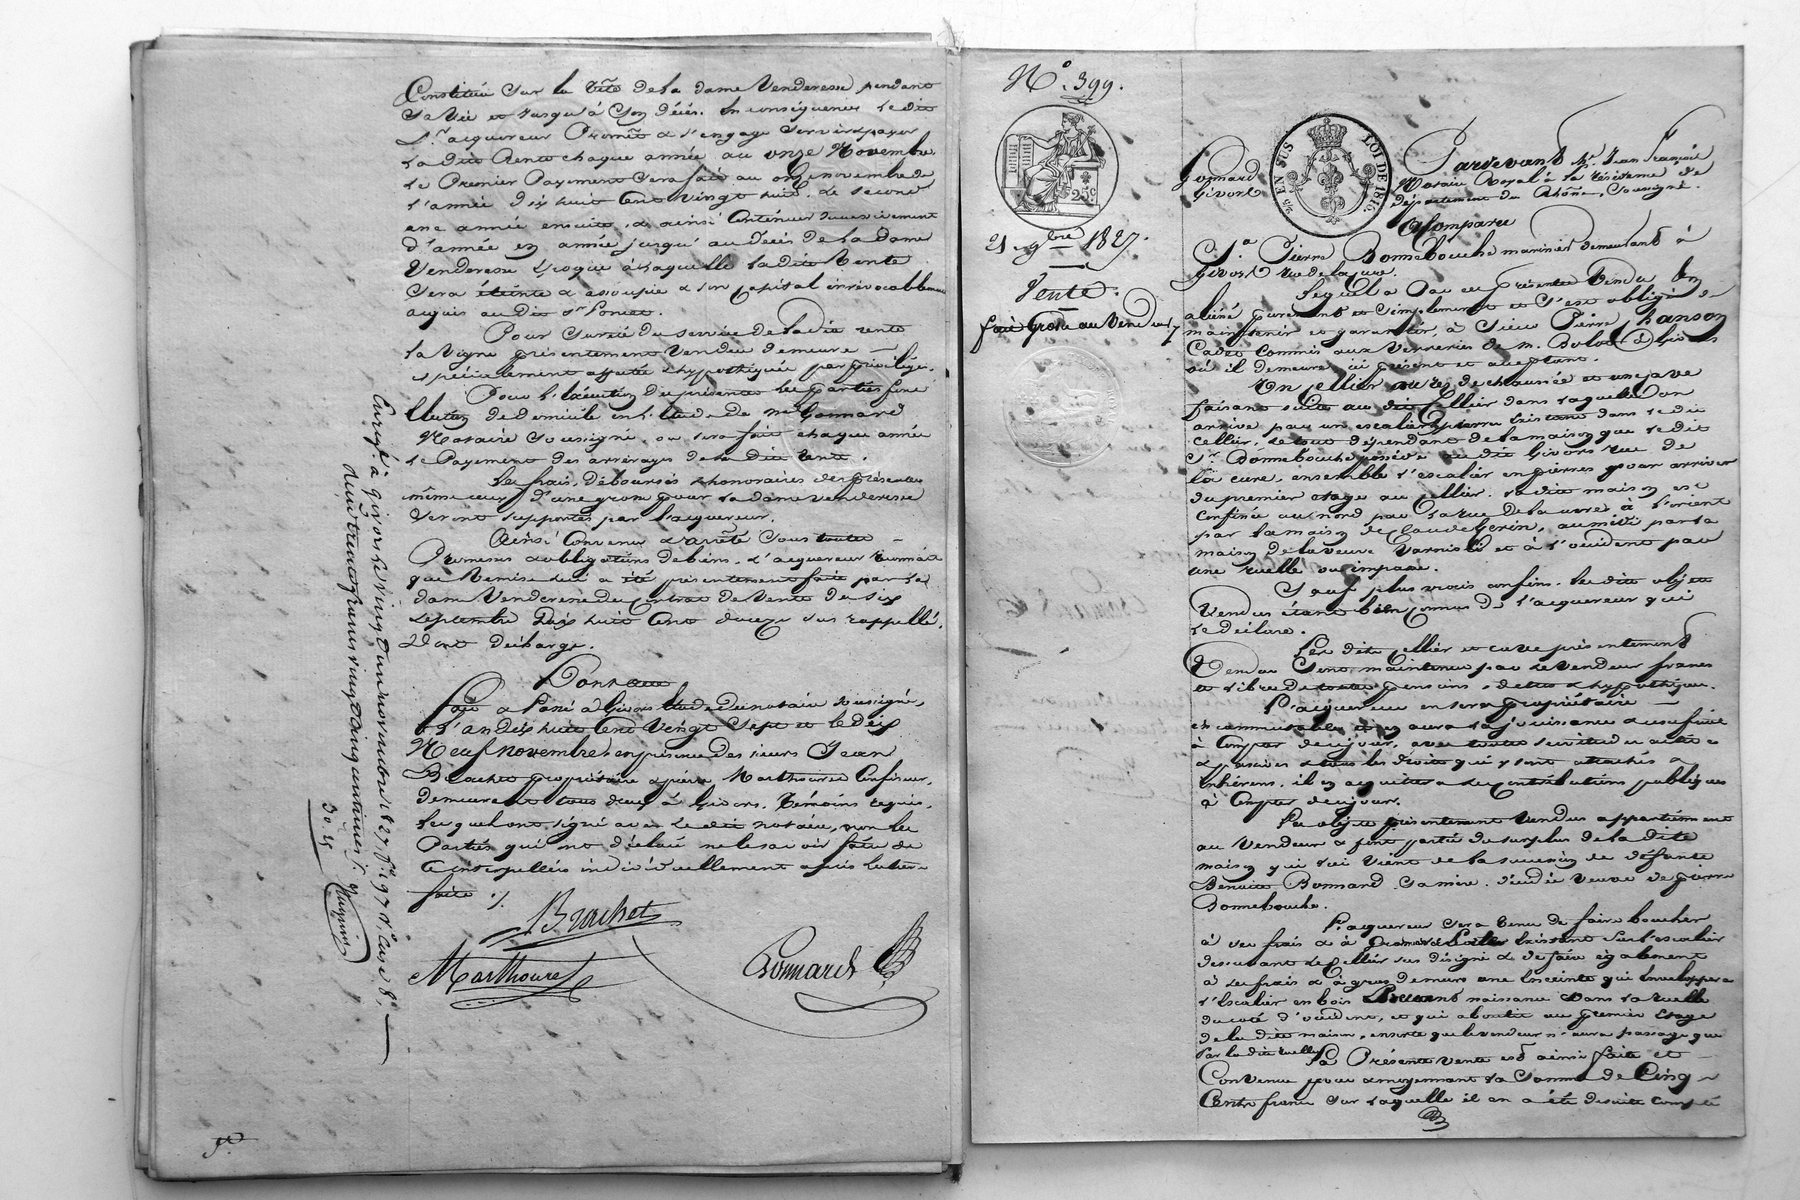 Constituée sur la tête de la dame Venderesse pendant
sa vie et jusqu'à son décès. En conséquence le dit
Sr. acquereur Promet & s'engage servir & payer
la dite Rente chaque année au onze Novembre
le Premier Payement sera fait au onze novembre de
l'année dix huit Cent vingt huit. le second
une année ensuite, & ainsi Continuer successivement
d'année en année jusqu'au décès de la dame
Venderesse Epoque à laquelle la dite Rente
sera éteinte & assoupie & son capital irrévocablement
acquis au dit Sr Poncet.
Pour Sureté du service de la dite rente
la Vigne présentement Vendue demeure
spécialement affectée & hypothéquée par privilége.
Pour l'éxécution des présentes les parties font
Election de domicile en l'Etude de me Gonnard
Notaire soussigné, ou sera fait chaque année
le Payement des arrérages de la dite rente.
Les frais, déboursés & honoraires des présentes
même ceux d'une grosse pour la dame venderesse
seront supportés par l'acquereur.
Ainsi Convenu & arrêté sous toutes
Promesses & obligations de biens. & l'acquereur
que Remise lui a été présentement faite par la
dame Venderesse du Contrat de Vente du six
septembre Dix huit Cent douze sus rappellé,
Dont décharge.
Dont acte
Fait & Passé à Givors Etude du notaire soussigné,
L'an dix huit Cent Vingt Sept et le Dix
Neuf novembre en présence des sieurs Jean
Brachet propriétaire & pierre Marthouret Confiseur,
demeurant tous deux à Givors, Témoins requis,
lesquels ont signé avec le dit notaire, non les
Parties qui ont déclaré ne le savoir faire de
ce interpellées individuellement après lecture
faite ./.
Brachet
Marthouret
Gonnard
Enregé à givors le vingt un novembre 1827 fo 97 Vo case 8e
deux trente francs vingt cinq centimes
30.25
N° 399.
25c
21 9bre 1827.
Vente.
fait Grosse au Vendeur
5/10 EN SUS
LOI DE 1816
Gonnard
Givors
Pardevant Me Jean François
Notaire Royal à la résidence de
département du Rhône, soussigné.
A Comparu
Sr. Pierre Bonnebouche marinier demeurant à
Givors rue de la cure.
Lequel a Par ces Présentes Vendu en
aliéné purement et simplement et s'est obligé
maintenir et garantir, à Sieur Pierre Hanson
Cadet Commis aux Verreries de m. Bolot & Givors
où il demeure ici présent et acceptant.
Un cellier au rés de chaussée et une cave
faisant suite au dit Cellier dans laquelle on
arrive par un escalier en pierre Existant dans le dit
cellier, le tout dépendant de la maison que le dit
Sr. Bonnebouche possède au dit Givors rue de
la cure, ensemble l'escalier en pierres pour arriver
du premier etage au cellier. la dite maison est
confinée au nord par la rue de la cure à l'orient
par la maison de Claude Gerin, au midi par la
maison de la veuve et à l'occident par
une ruelle ou impasse.
Sauf plus vrais confins. les dits objets
Vendus étant bien connus de l'acquereur qui
le déclare.
Les dits cellier et cave présentement
Vendus Sont maintenus par le Vendeur francs
et libres de toutes pensions, dettes & hypothéques.
L'acquereur en sera propriétaire
incommutable, & en aura la jouissance & usufruit
à Compter de ce jour, avec toutes servitudes actives
& passives & tous les droits qui y sont attachés &
Inhérens, il en acquittera les contributions publiques
à Compter de ce jour.
Les objets présentement Vendus appartiennent
au Vendeur & font partie du surplus de la dite
maison qui lui vient de la succession de défunte
Benoite Bonnard sa mère, décédée Veuve de pierre
Bonnebouche.
L'acquereur sera tenu de faire boucher
à ses frais & à Existant sur l'escalier
descendant au Cellier sus désigné & de faire également
à ses frais & à gros de murs une Enceinte qui Enveloppera
l'Escalier en bois Prenant naissance dans la ruelle
du coté d'occident, et qui aboutit au premier Etage
de la dite maison, ensorte que le vendeur n'aura passage que
Par la dite ruelle.
La Présente vente est ainsi faite et
Convenue pour & moyennant la Somme de Cinq
Cents francs Sur laquelle il en a été desuite compté